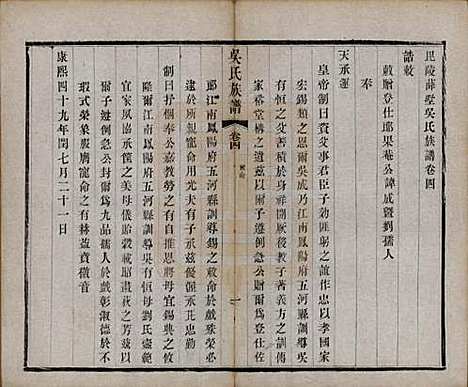 毘陵薛墅吳氏族譜卷四
誥敕
敕贈登仕郎果菴公諱成暨劉孺人
奉
天承運
皇帝制曰資父事君臣子劾匪躬之誼作忠以孝國家
宏錫類之恩吳成乃江南鳳陽府五河縣訓導吳
有恆之父善積於身祥開厥後教子著義方之訓傳
家裕堂構之遺茲以爾子遵例急公贈爾為登仕佐
吳氏族譜
卷四
一
郎江南鳳陽府五河縣訓導錫之敕命於戲殊榮必
逮於所親寵命用光夫有子承茲優渥永
制曰奉職在公嘉教勞之有自推恩將母宜錫典之攸
隆爾江南鳳陽府五河縣訓導吳有恆母劉氏壼範
宜家夙協承筐之美母儀詒穀載昭
以爾子遵例急公贈爾為八品孺人於戲彰淑德於不
瑕式榮象服膺寵命之有赫益貴徽音
康熙四十九年閏七月二十一日